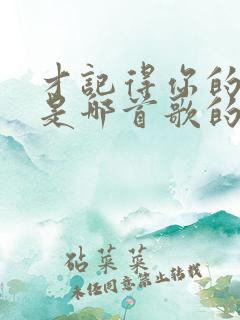 才记得你的
是哪首歌的
砧菜菜
未经同意禁止转载